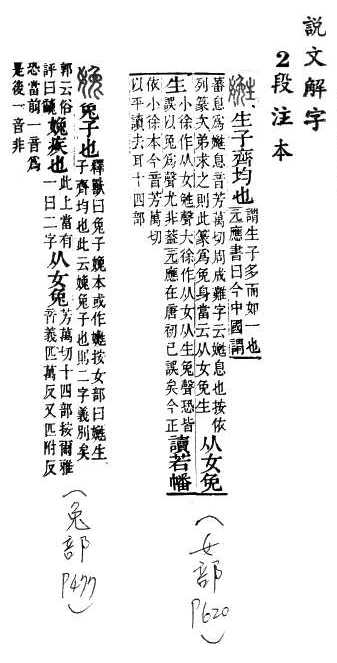 説文解字
2段注本
生子齊均也
謂生子多而如一也
元應書曰今中國謂
蕃息爲嬎息音芳萬切周成難字云嬎息也按依
列篆次弟求之則此篆爲免身當云从女免生
从女免
生
小徐作从女生免聲大徐作从女从生免聲恐皆
誤以免爲聲尤非葢元應在唐初已誤矣今正
讀若幡
依小徐本今音芳萬切
以平讀去耳十四部
(女部P620)
兔子也
釋獸曰兔子嬎本或作嬎按女部曰嬎生
子齊均也此云娩兔子也則二字義別矣
郭云俗
評曰
娩疾也
此上當有
一曰二字
从女兔
芳萬切十四部按爾雅
音義匹萬反又匹附反
恐當前一音爲
是後一音非
(兔部P477)